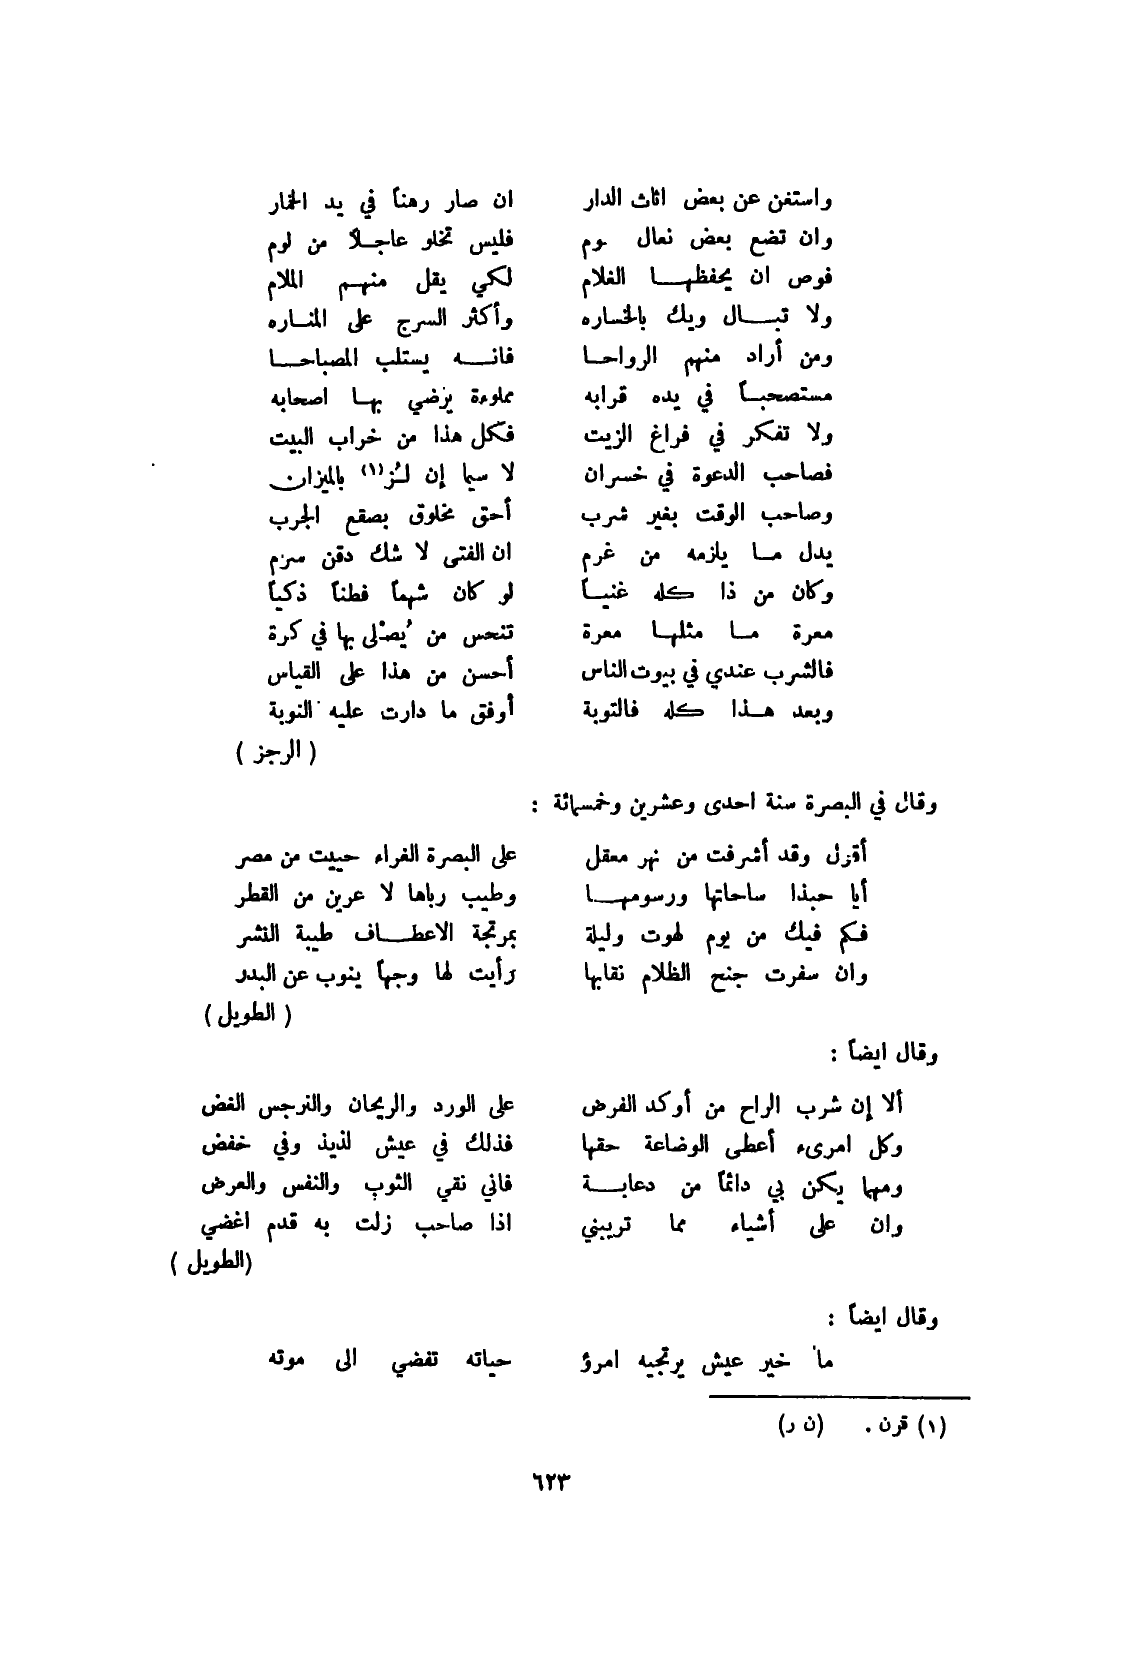 واستغن عن بعض اثاث الدار ان صار رهناً في يد الخمار
وان تضع بعض نعال يوم فليس تخلو عاجلاً من لوم
فوص ان يحفظهـا الغلام لكي يقل منهم الملام
ولا تبـال ويك بالخساره وأكثر السرج على المنـاره
ومن أراد منهم الرواحـا فانـه يستلب المصباحـا
مستصحبـاً في يده قرابه مملوءة يرضي بهـا اصحابه
ولا تفكر في فراغ الزيت فكل هذا من خراب البيت
فصاحب الدعوة في خسران لا سيما إن لُز(١) بالميزان
وصاحب الوقت بغير شرب أحق مخلوق بصقع الجرب
يدل مـا يلزمه من غرم ان الفتى لا شك دقن سرم
وكان من ذا كله غنيـاً لو كان شهماً فطناً ذكياً
معرة مـا مثلهـا معرة تنحس من يُصلى بها في كرة
فالشرب عندي في بيوت الناس أحسن من هذا على القياس
وبعد هـذا كله فالتوبة أوفق ما دارت عليه النوبة
( الرجز )
وقال في البصرة سنة احدى وعشرين وخمسمائة :
أقول وقد أشرفت من نهر معقل على البصرة الغراء حييت من مصر
أيا حبذا ساحاتها ورسومهـا وطيب رباها لا عرين من القطر
فكم فيك من يوم لهوت وليلة بمرتجة الاعطـاف طيبة النشر
وان سفرت جنح الظلام نقابها رأيت لها وجهاً ينوب عن البدر
( الطويل )
وقال ايضاً :
ألا إن شرب الراح من أوكد الفرض على الورد والريحان والنرجس الغض
وكل امرىء أعطى الوضاعة حقها فذلك في عيش لذيذ وفي خفض
ومهما يكن بي دائماً من دعابـة فاني نقي الثوب والنفس والعرض
وان على أشياء مما تريبني اذا صاحب زلت به قدم اغضي
(الطويل )
وقال ايضاً :
ما خير عيش يرتجيه امرؤ حياته تفضي الى موته
(١) قرن . (ن ر)
٦٢٣